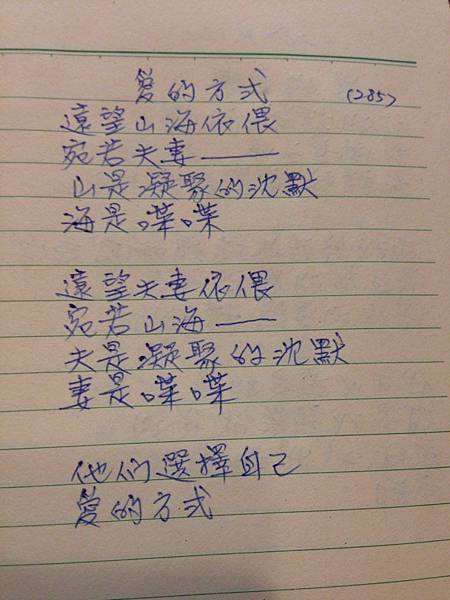 愛的方式 (285)
遠望山海依偎
宛若夫妻——
山是凝聚的沈默
海是喋喋
遠望夫妻依偎
宛若山海——
夫是凝聚的沈默
妻是喋喋
他们選擇自己
愛的方式